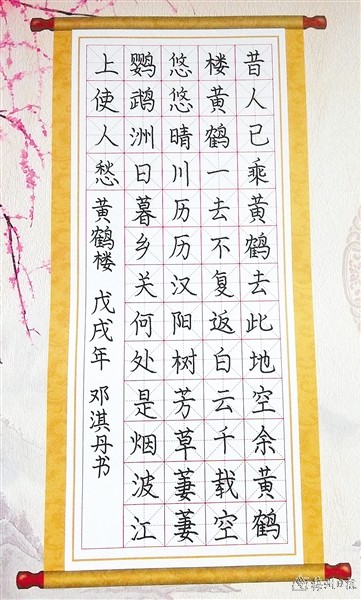 昔人已乘黄鹤去此地空余黄鹤
楼黄鹤一去不复返白云千载空
悠悠晴川历历汉阳树芳草萋萋
鹦鹉洲日暮乡关何处是烟波江
上使人愁 黄鹤楼 戊戌年 邓淇丹书